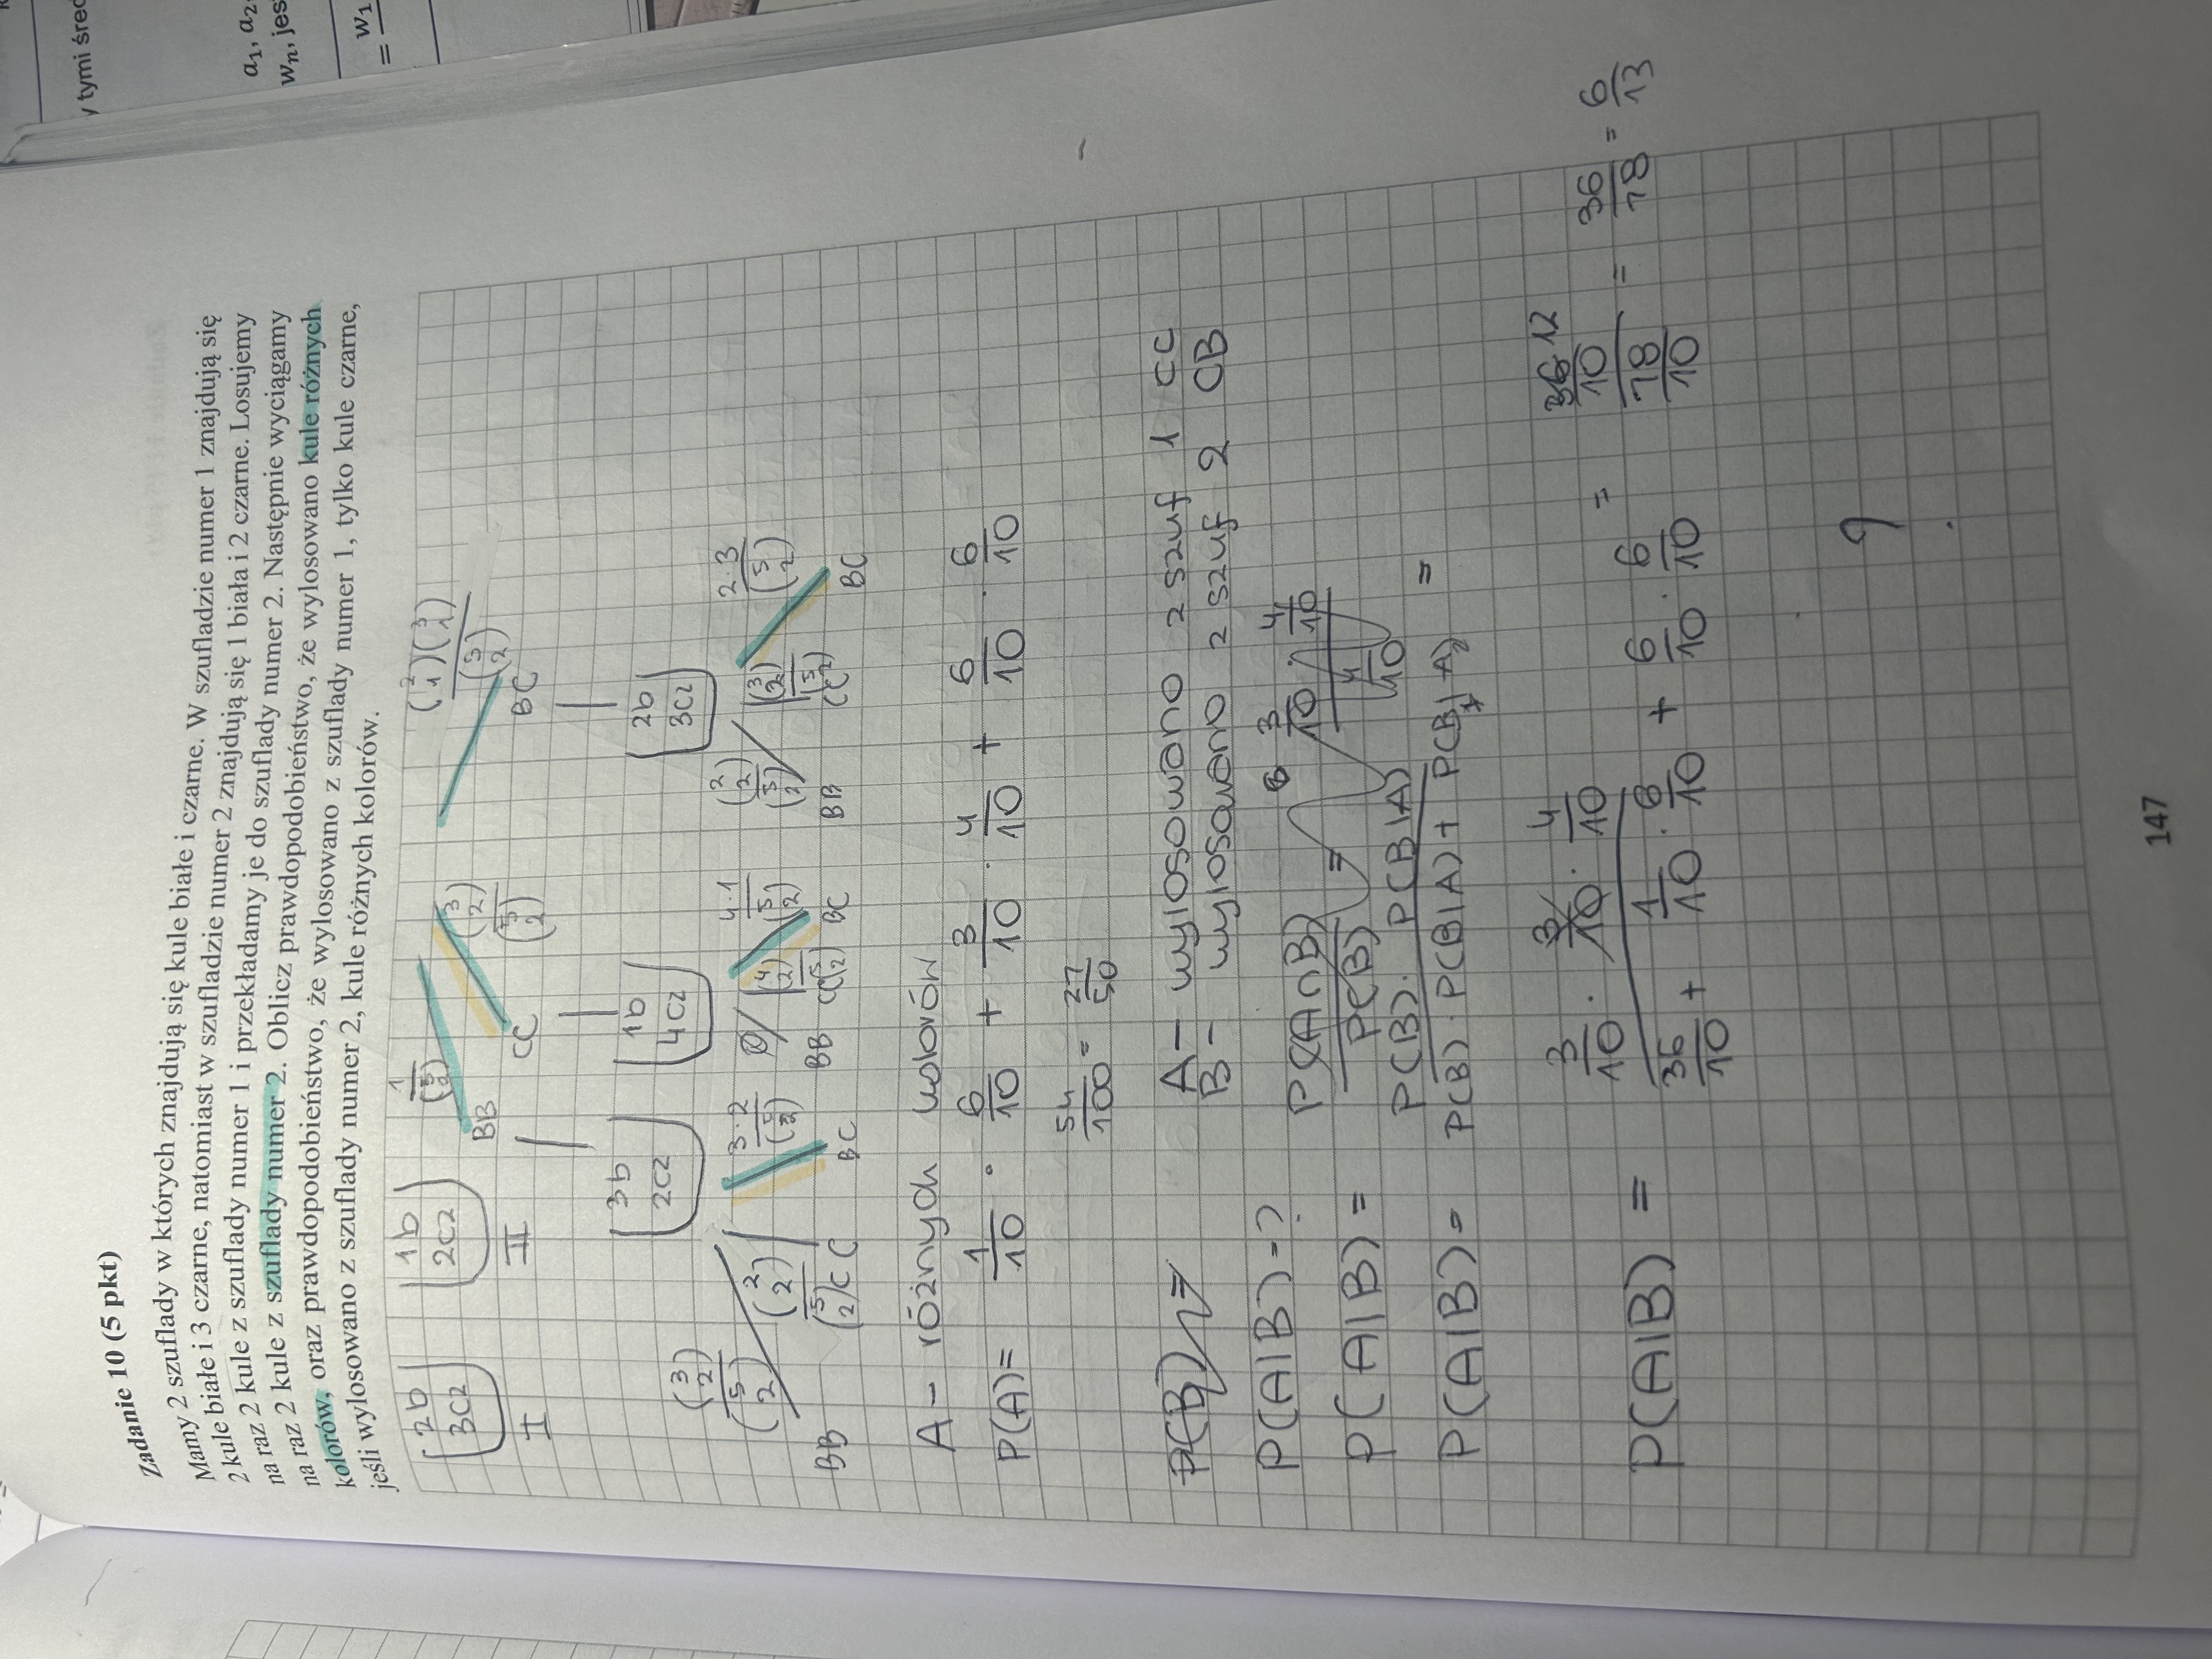 y tymi śred
a₁, a₂,
wₙ, jes
= w₁
Zadanie 10 (5 pkt)
Mamy 2 szuflady w których znajdują się kule białe i czarne. W szufladzie numer 1 znajdują się
2 kule białe i 3 czarne, natomiast w szufladzie numer 2 znajdują się 1 biała i 2 czarne. Losujemy
na raz 2 kule z szuflady numer 1 i przekładamy je do szuflady numer 2. Następnie wyciągamy
na raz 2 kule z szuflady numer 2. Oblicz prawdopodobieństwo, że wylosowano kule różnych
kolorów, oraz prawdopodobieństwo, że wylosowano z szuflady numer 1, tylko kule czarne,
jeśli wylosowano z szuflady numer 2, kule różnych kolorów.
2b 1b 1/(5 2) (3 2)/(5 2) (2 1)(3 1)/(5 2)
3cz 2cz BB CC BC
I II
3b 1b 2b
2cz 4cz 3cz
(3 2)/(5 2) (2 2)/(5 2) 3·2/(5 2) (4 2)/(5 2) 4·1/(5 2) (2 2)/(5 2) (3 2)/(5 2) 2·3/(5 2)
BB CC BC BB CC BC BB CC BC
A - różnych kolorów
P(A) = 1/10 · 6/10 + 3/10 · 4/10 + 6/10 · 6/10
54/100 = 27/50
P(B) A - wylosowano z szuf 1 CC
B - wylosowano z szuf 2 CB
P(A|B) = ?
P(A|B) = P(A∩B)/P(B) = 3/10 · 4/10 / 4/10
P(A|B) = P(B) · P(B|A) / P(B) · P(B|A) + P(B|A) =
P(A|B) = 3/10 · 3/10 · 4/10 / 36/10 + 1/10 · 6/10 + 6/10 · 6/10 = 36 12/10 / 78/10 = 36/78 = 6/13
?
147